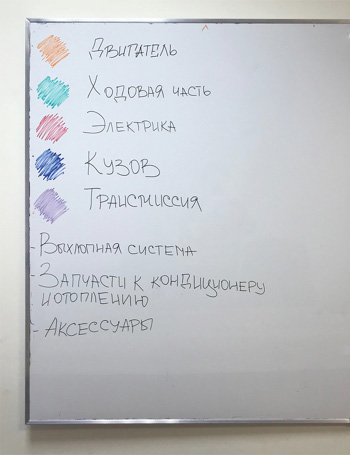 Двигатель
Ходовая часть
Электрика
Кузов
Трансмиссия
- Выхлопная система
- Запчасти к кондиционеру
и отоплению
- Аксессуары